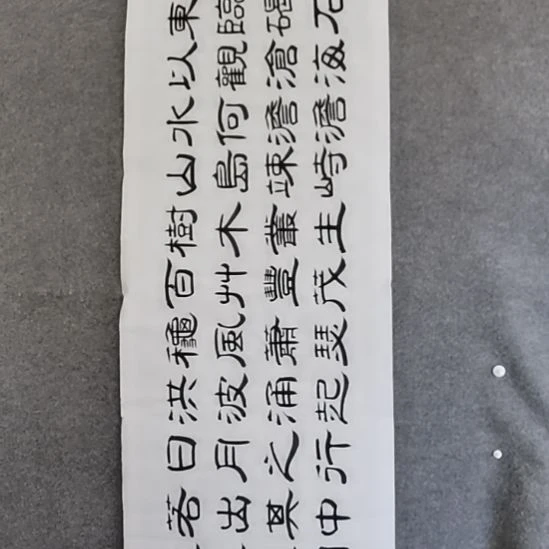 東臨碣石
以觀滄海
水何澹澹
山島竦峙
樹木叢生
百艸豐茂
龝風蕭瑟
洪波涌起
日月之行
若出其中